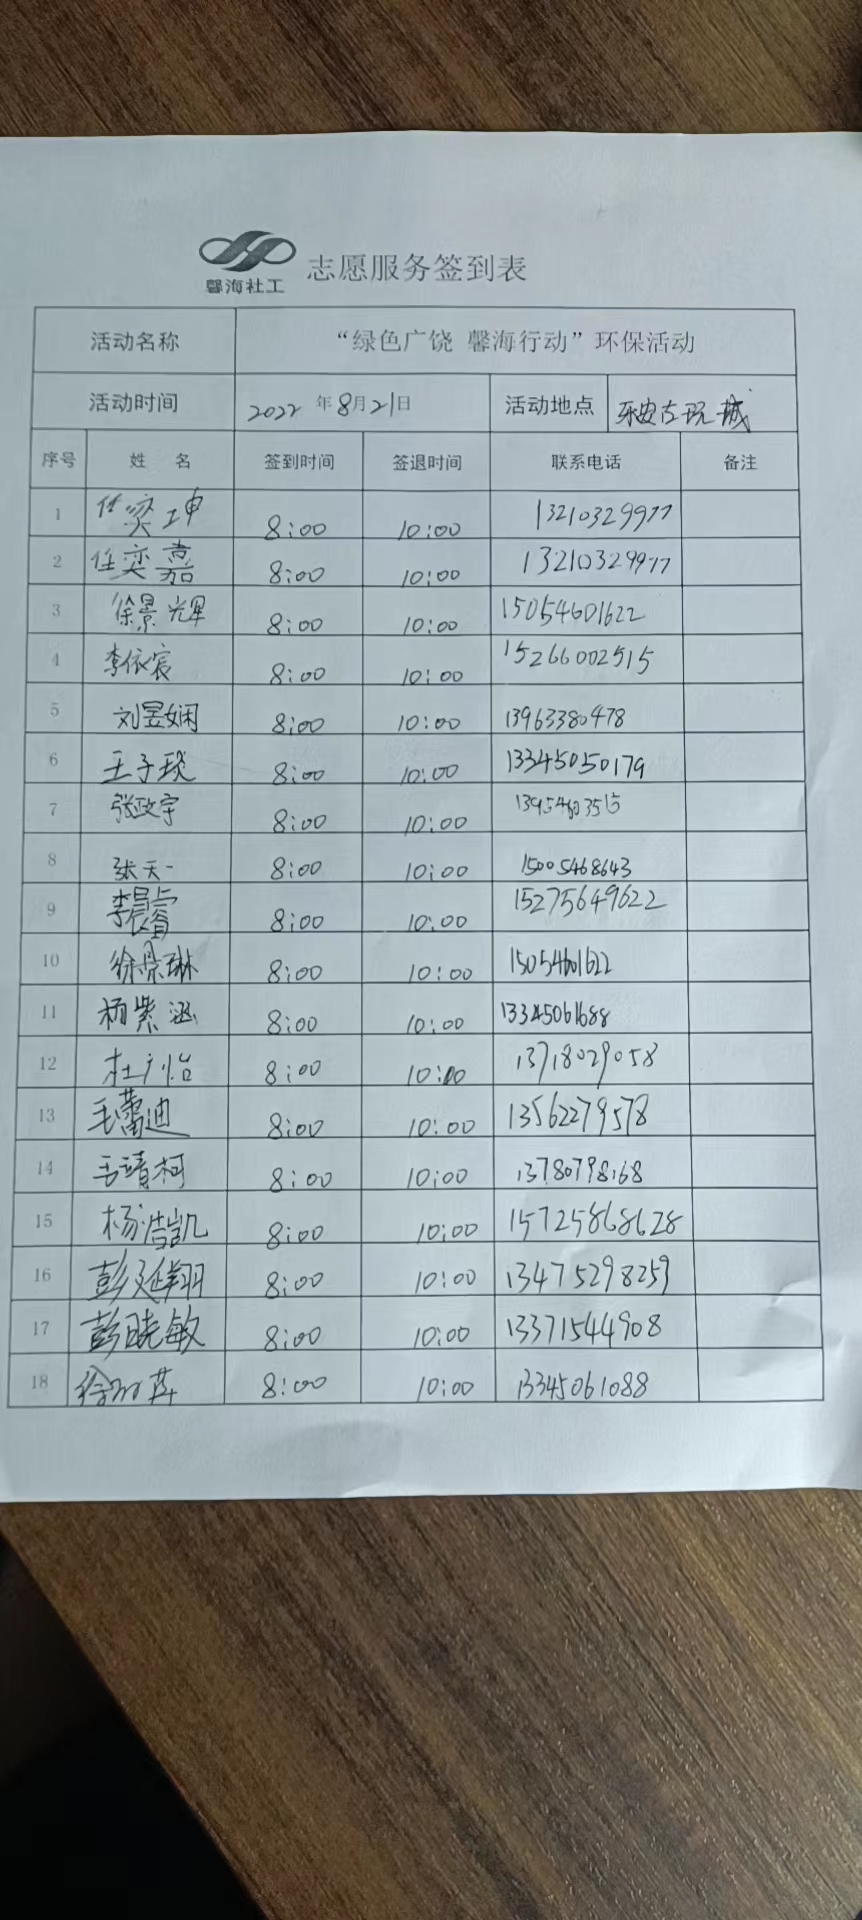 馨海社工 志愿服务签到表
活动名称 “绿色广饶 馨海行动”环保活动
活动时间 2022年8月21日 活动地点 乐安古玩城
序号 姓 名 签到时间 签退时间 联系电话 备注
1 任奕坤 8:00 10:00 13210329977
2 任奕嘉 8:00 10:00 13210329977
3 徐景辉 8:00 10:00 15054601622
4 李依宸 8:00 10:00 15266002515
5 刘昱娴 8:00 10:00 13963380478
6 王子琰 8:00 10:00 13345050179
7 张政宇 8:00 10:00
8 张天一 8:00 10:00 15005468643
9 李晨睿 8:00 10:00 15275649622
10 徐景琳 8:00 10:00 15054601622
11 杨紫涵 8:00 10:00
12 杜广怡 8:00 10:00 13718029058
13 毛蕾迪 8:00 10:00 13562279578
14 8:00 10:00 13780798168
15 杨浩凯 8:00 10:00 15725868628
16 8:00 10:00 13475298259
17 彭晓敏 8:00 10:00 13371544908
18 8:00 10:00 13345061088